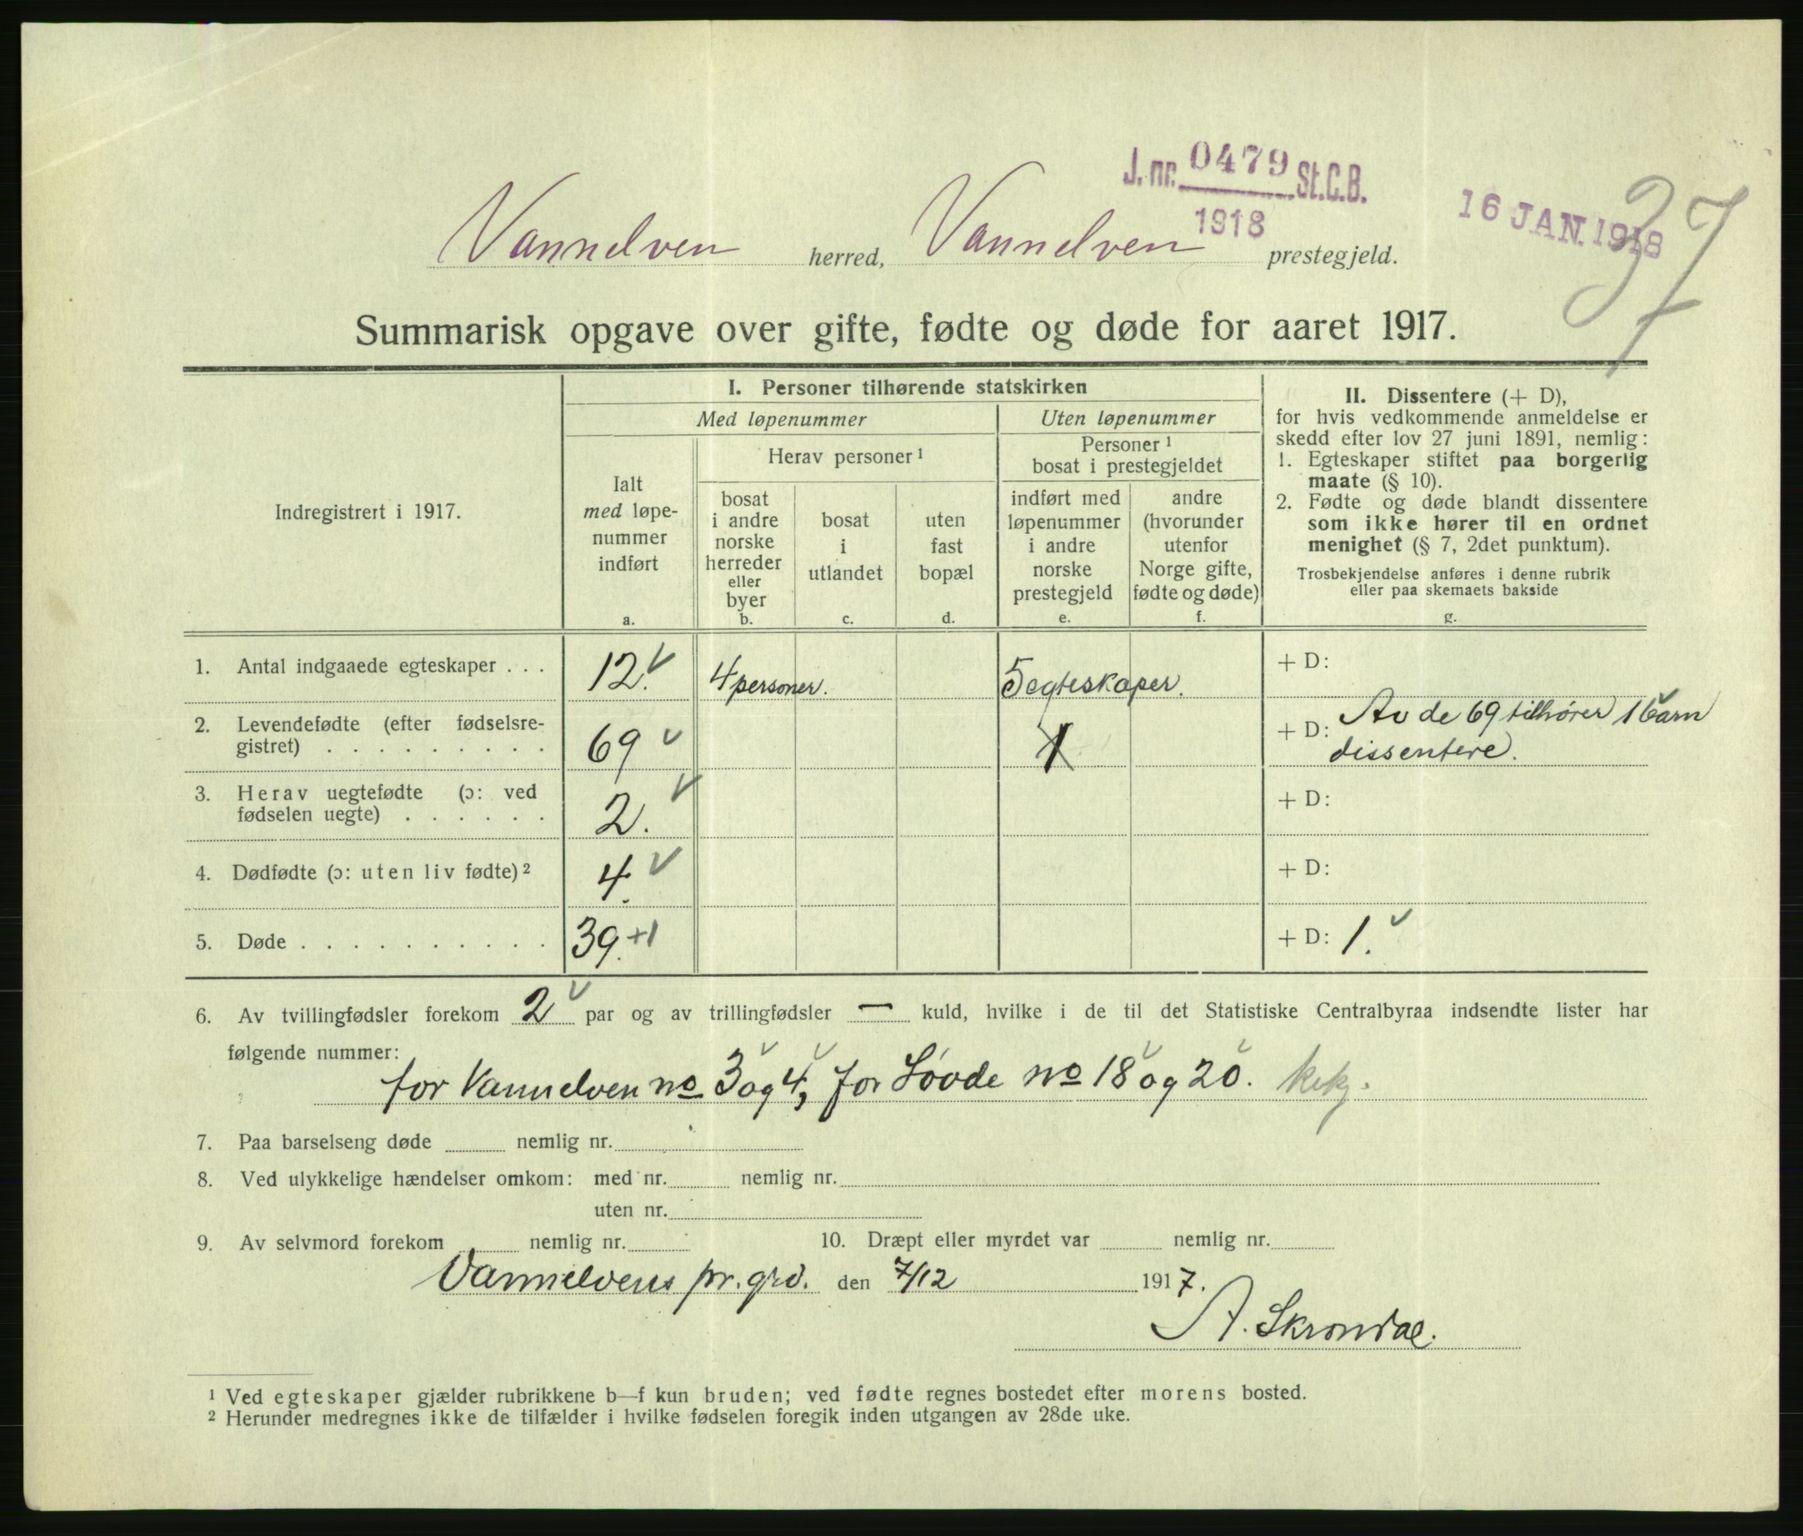 J. nr. 0479 St.C.B.
1918
16 JAN. 1918
37
Vannelven herred, Vannelven prestegjeld.
Summarisk opgave over gifte, fødte og døde for aaret 1917.
Indregistrert i 1917.
I. Personer tilhørende statskirken
Med løpenummer
Uten løpenummer
Herav personer ¹
Personer ¹
bosat i prestegjeldet
Ialt
med løpe-
nummer
indført
a.
bosat
i andre
norske
herreder
eller
byer
b.
bosat
i
utlandet
c.
uten
fast
bopæl
d.
indført med
løpenummer
i andre
norske
prestegjeld
e.
andre
(hvorunder
utenfor
Norge gifte,
fødte og døde)
f.
II. Dissentere (+ D),
for hvis vedkommende anmeldelse er
skedd efter lov 27 juni 1891, nemlig:
1. Egteskaper stiftet paa borgerlig
maate (§ 10).
2. Fødte og døde blandt dissentere
som ikke hører til en ordnet
menighet (§ 7, 2det punktum).
Trosbekjendelse anføres i denne rubrik
eller paa skemaets bakside
g.
1. Antal indgaaede egteskaper . . . 12. 4 personer. 5 egteskaper. + D:
2. Levendefødte (efter fødselsre-
gistret) . . . . . . . . . 69 1 + D: Av de 69 tilhører 1 barn
dissentere.
3. Herav uegtefødte (ɔ: ved
fødselen uegte) . . . . . . 2. + D:
4. Dødfødte (ɔ: uten liv fødte) ² 4. + D:
5. Døde . . . . . . . . . . 39. +1 + D: 1.
6. Av tvillingfødsler forekom 2 par og av trillingfødsler — kuld, hvilke i de til det Statistiske Centralbyraa indsendte lister har
følgende nummer:
for Vannelven no 3 og 4, for Søvde no 18 og 20.
7. Paa barselseng døde nemlig nr.
8. Ved ulykkelige hændelser omkom: med nr. nemlig nr.
uten nr.
9. Av selvmord forekom nemlig nr. 10. Dræpt eller myrdet var nemlig nr.
Vannelvens pr. grd. den 7/12 1917.
A. Skrondal.
¹ Ved egteskaper gjælder rubrikkene b—f kun bruden; ved fødte regnes bostedet efter morens bosted.
² Herunder medregnes ikke de tilfælder i hvilke fødselen foregik inden utgangen av 28de uke.